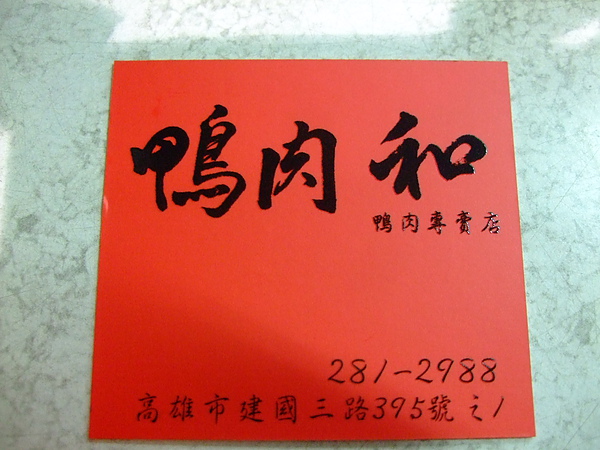 鴨肉和
鴨肉專賣店
281-2988
高雄市建國三路395號之1